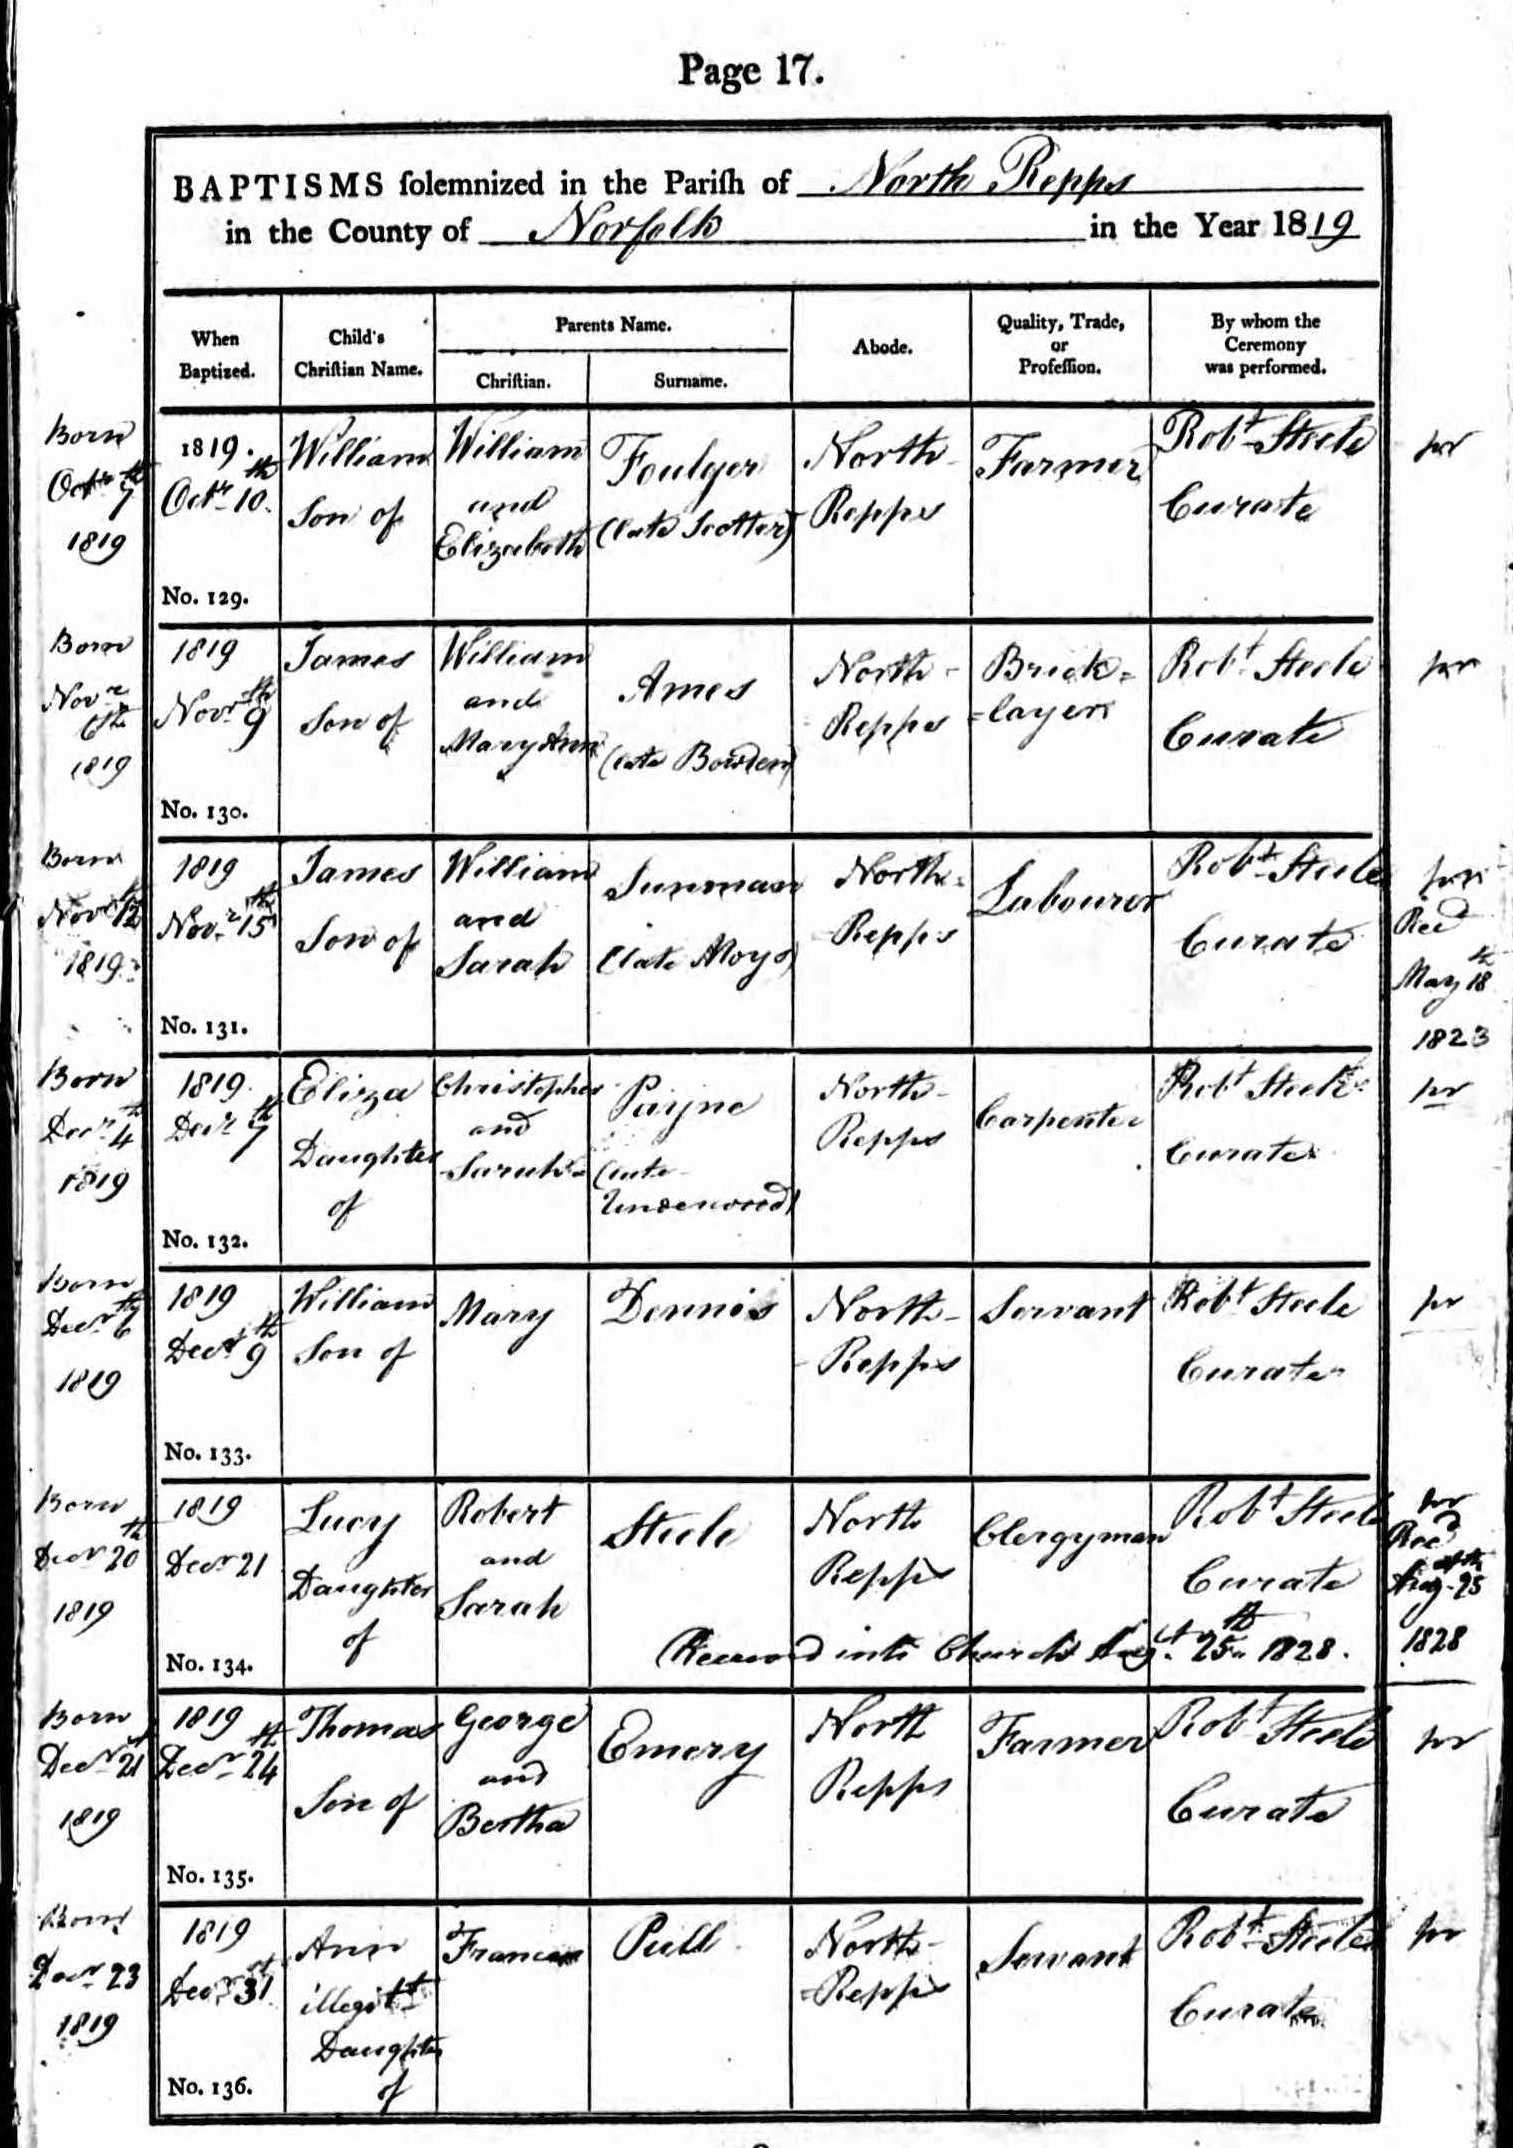 Page 17.
BAPTISMS solemnized in the Parish of North Repps
in the County of Norfolk in the Year 1819
When Baptized.
Child's Christian Name.
Parents Name.
Christian.
Surname.
Abode.
Quality, Trade, or Profession.
By whom the Ceremony was performed.
Born
Octr 7th
1819
1819.
Octr 10th.
No. 129.
William
Son of
William
and
Elizabeth
Foulger
(late Scotter)
North
Repps
Farmer
Robt Steele
Curate
pr
Born
Novr
6th
1819
1819
Novr 9th
No. 130.
James
Son of
William
and
Mary Ann
Ames
(late Bowden)
North-
Repps
Brick=
=layer
Robt Steele
Curate
pr
Born
Novr 12th
1819
1819
Novr 15th
No. 131.
James
Son of
William
and
Sarah
Sunman
(late Moys)
North=
Repps
Labourer
Robt Steele
Curate
pr
Recd
May 18th
1823
Born
Decr 4th
1819
1819
Decr 7th
No. 132.
Eliza
Daughter
of
Christopher
and
Sarah
Payne
(late
Underwood)
North-
Repps
Carpenter
Robt Steele
Curate
pr
Born
Decr 6th
1819
1819
Decr 9th
No. 133.
William
Son of
Mary
Dennis
North-
Repps
Servant
Robt Steele
Curate
pr
Born
Decr 20th
1819
1819
Decr 21
No. 134.
Lucy
Daughter
of
Robert
and
Sarah
Steele
North
Repps
Clergyman
Robt Steele
Curate
Received into Church Augt 25th 1828.
pr
Recd
Aug 25th
1828
Born
Decr 21st
1819
1819
Decr 24th
No. 135.
Thomas
Son of
George
and
Bertha
Emery
North
Repps
Farmer
Robt Steele
Curate
pr
Born
Decr 23
1819
1819
Decr 31st
No. 136.
Ann
illegitt
Daughter
of
Frances
Pull
North-
Repps
Servant
Robt Steele
Curate
pr